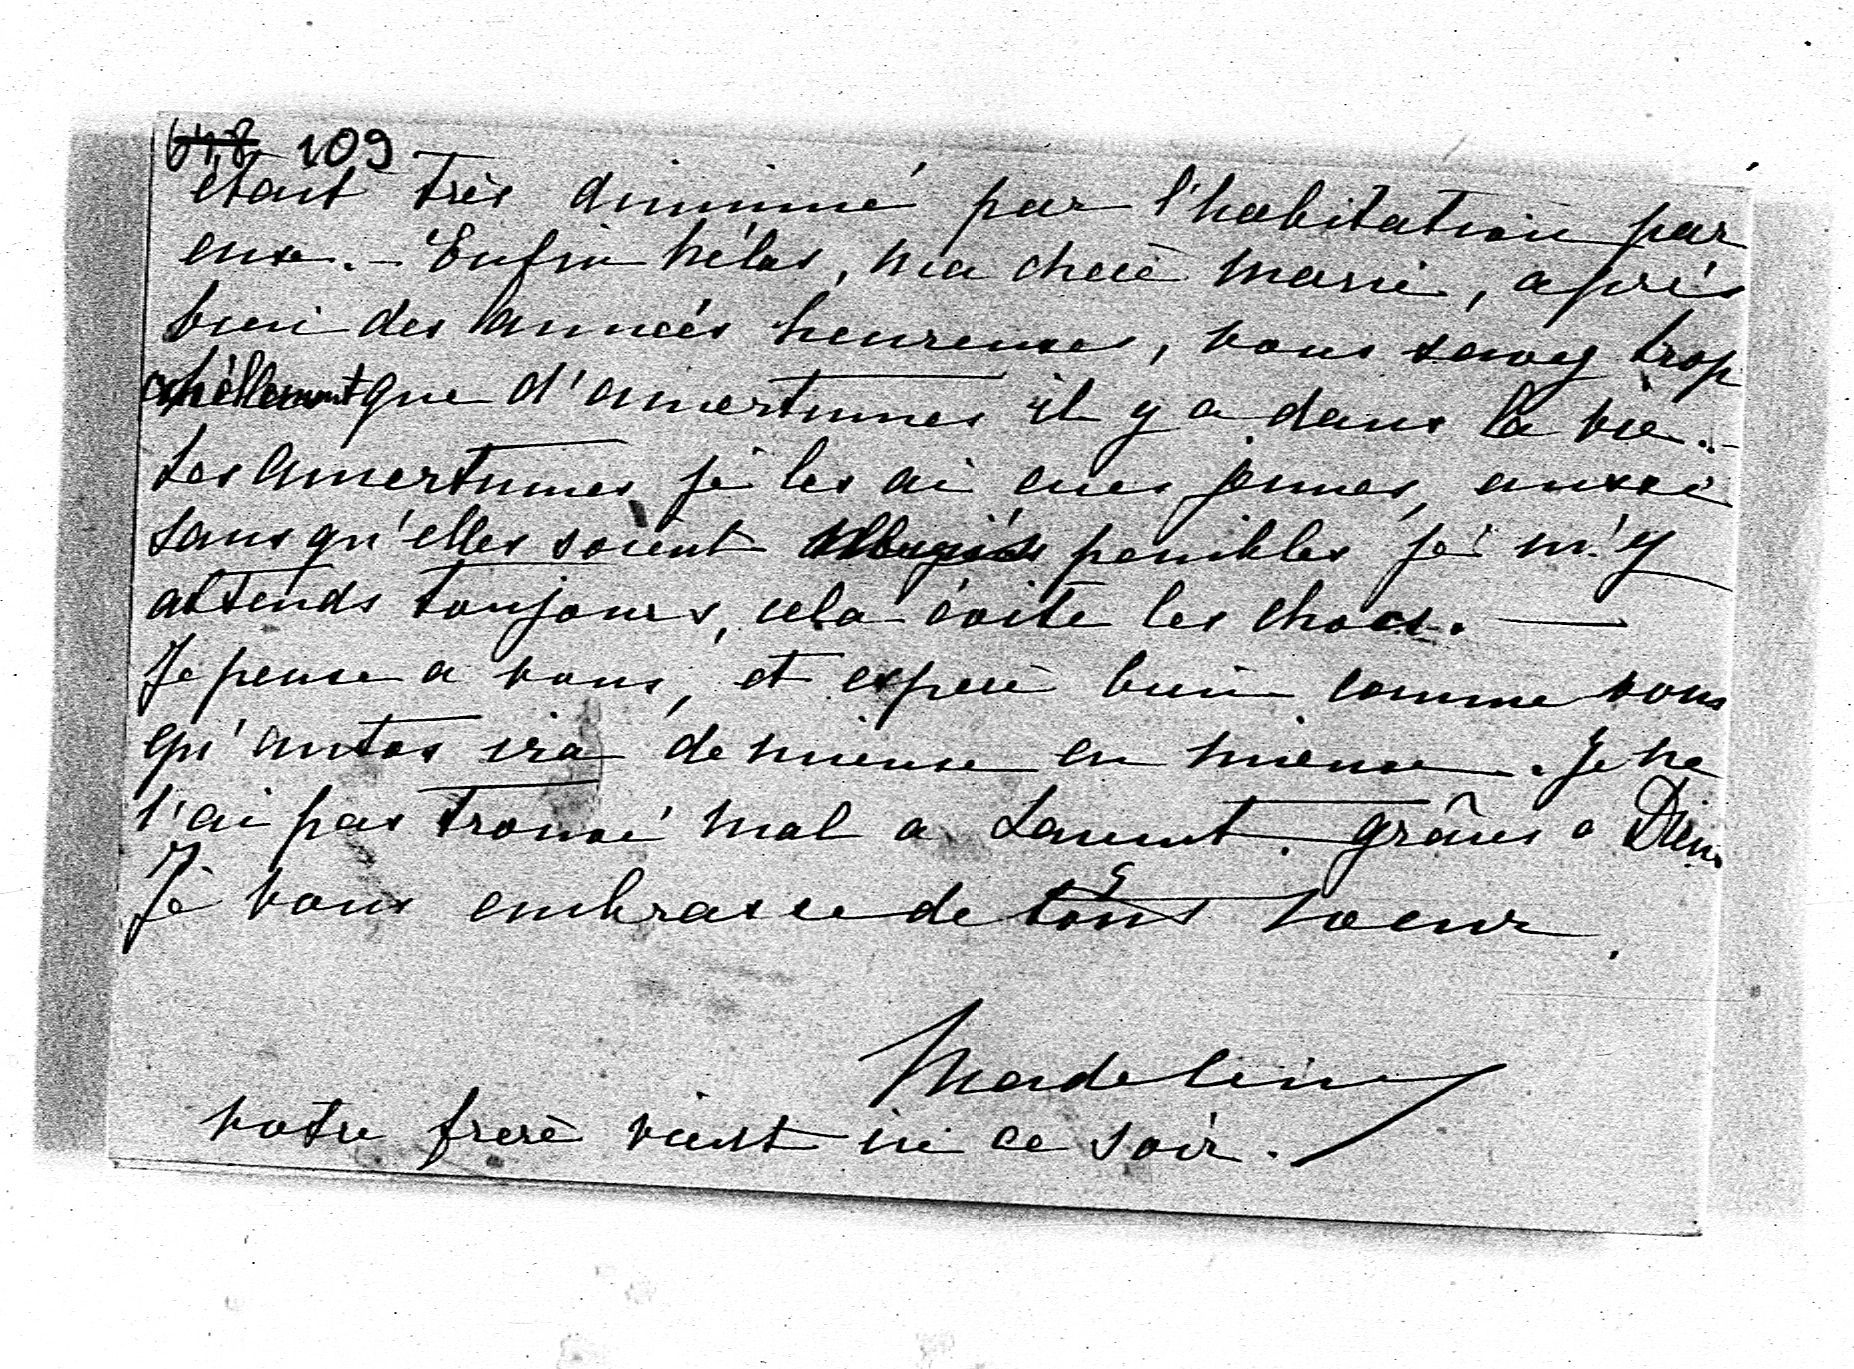 109
était très diminué par l'habitation par
eux. - Enfin hélas, ma chère Marie, après
bien des années heureuses, vous savez trop
que d'amertumes il y a dans la vie. -
Les amertumes je les ai eues jeunes, aussi
sans qu'elles soient penibles je m'y
attends toujours, cela évite les chocs. —
Je pense a vous, et espere bien comme vous
qu' ira de mieux en mieux. Je ne
l'ai pas trouvé mal a Laurent. grâces a Dieu
Je vous embrasse de coeur.
Madeleine
votre frere vient ici ce soir.